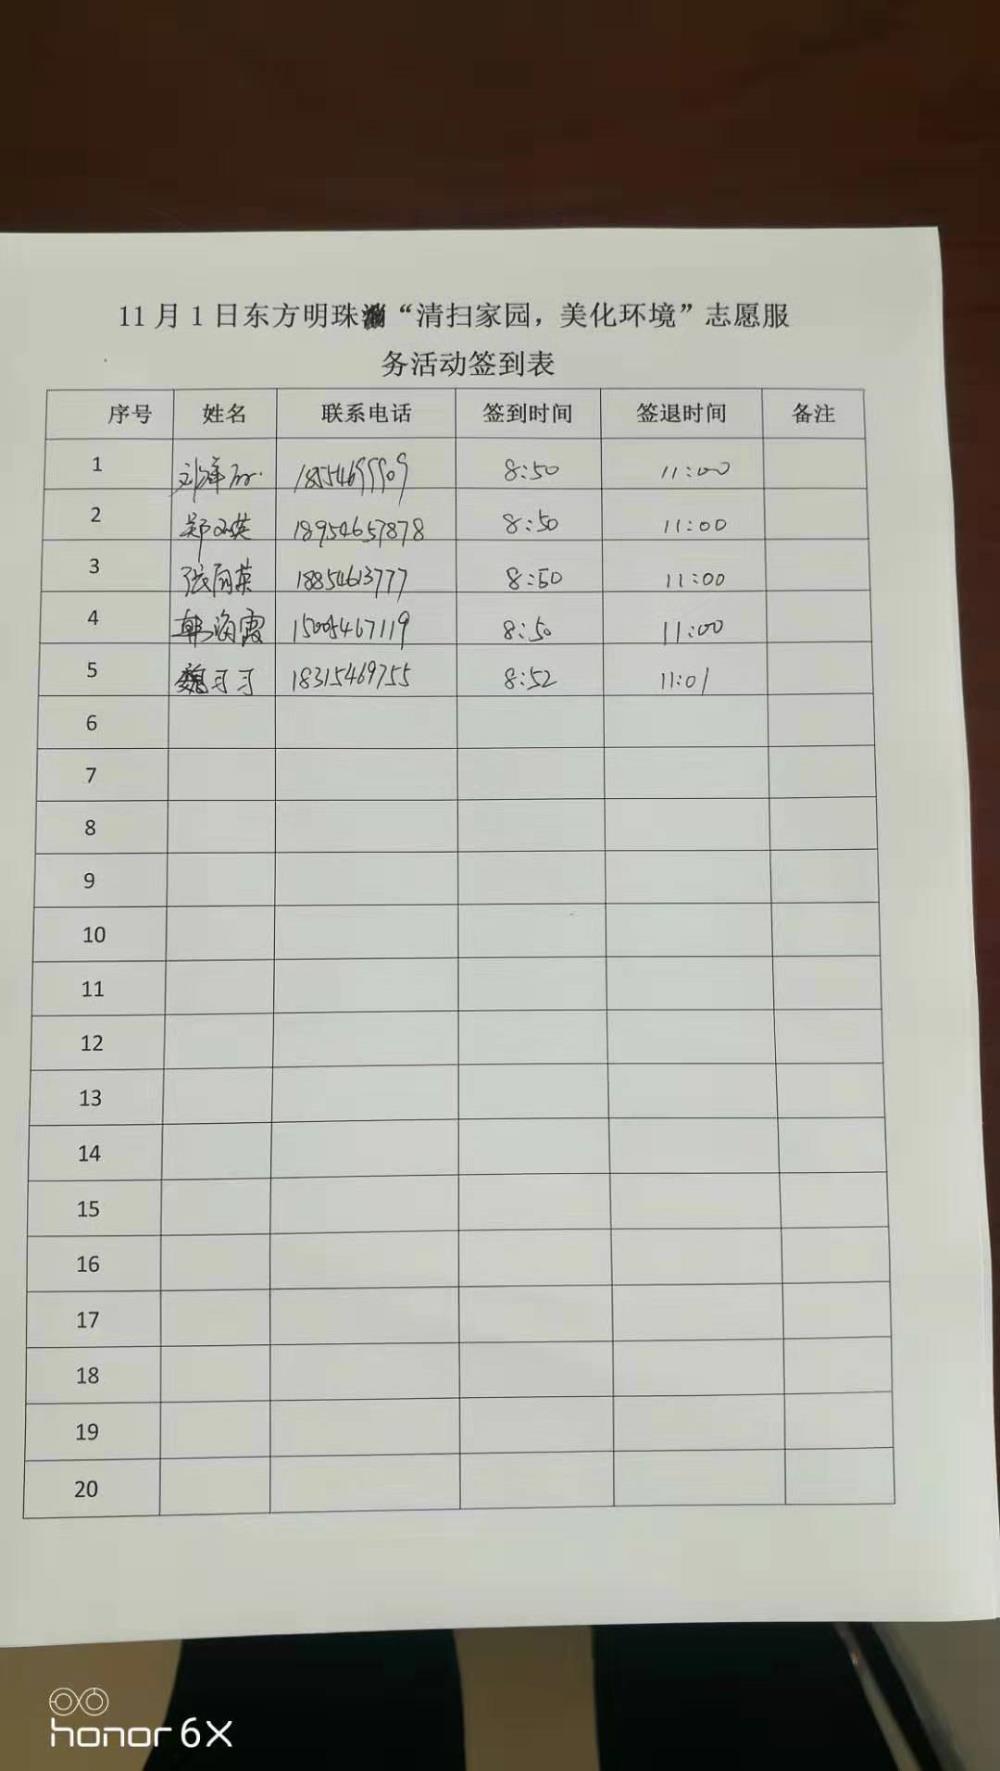 11月1日东方明珠“清扫家园，美化环境”志愿服
务活动签到表
序号 姓名 联系电话 签到时间 签退时间 备注
1 8:50 11:00
2 18954657878 8:50 11:00
3 18854613777 8:50 11:00
4 韩海霞 15005467119 8:50 11:00
5 魏习习 18315469755 8:52 11:01
6
7
8
9
10
11
12
13
14
15
16
17
18
19
20
honor 6X